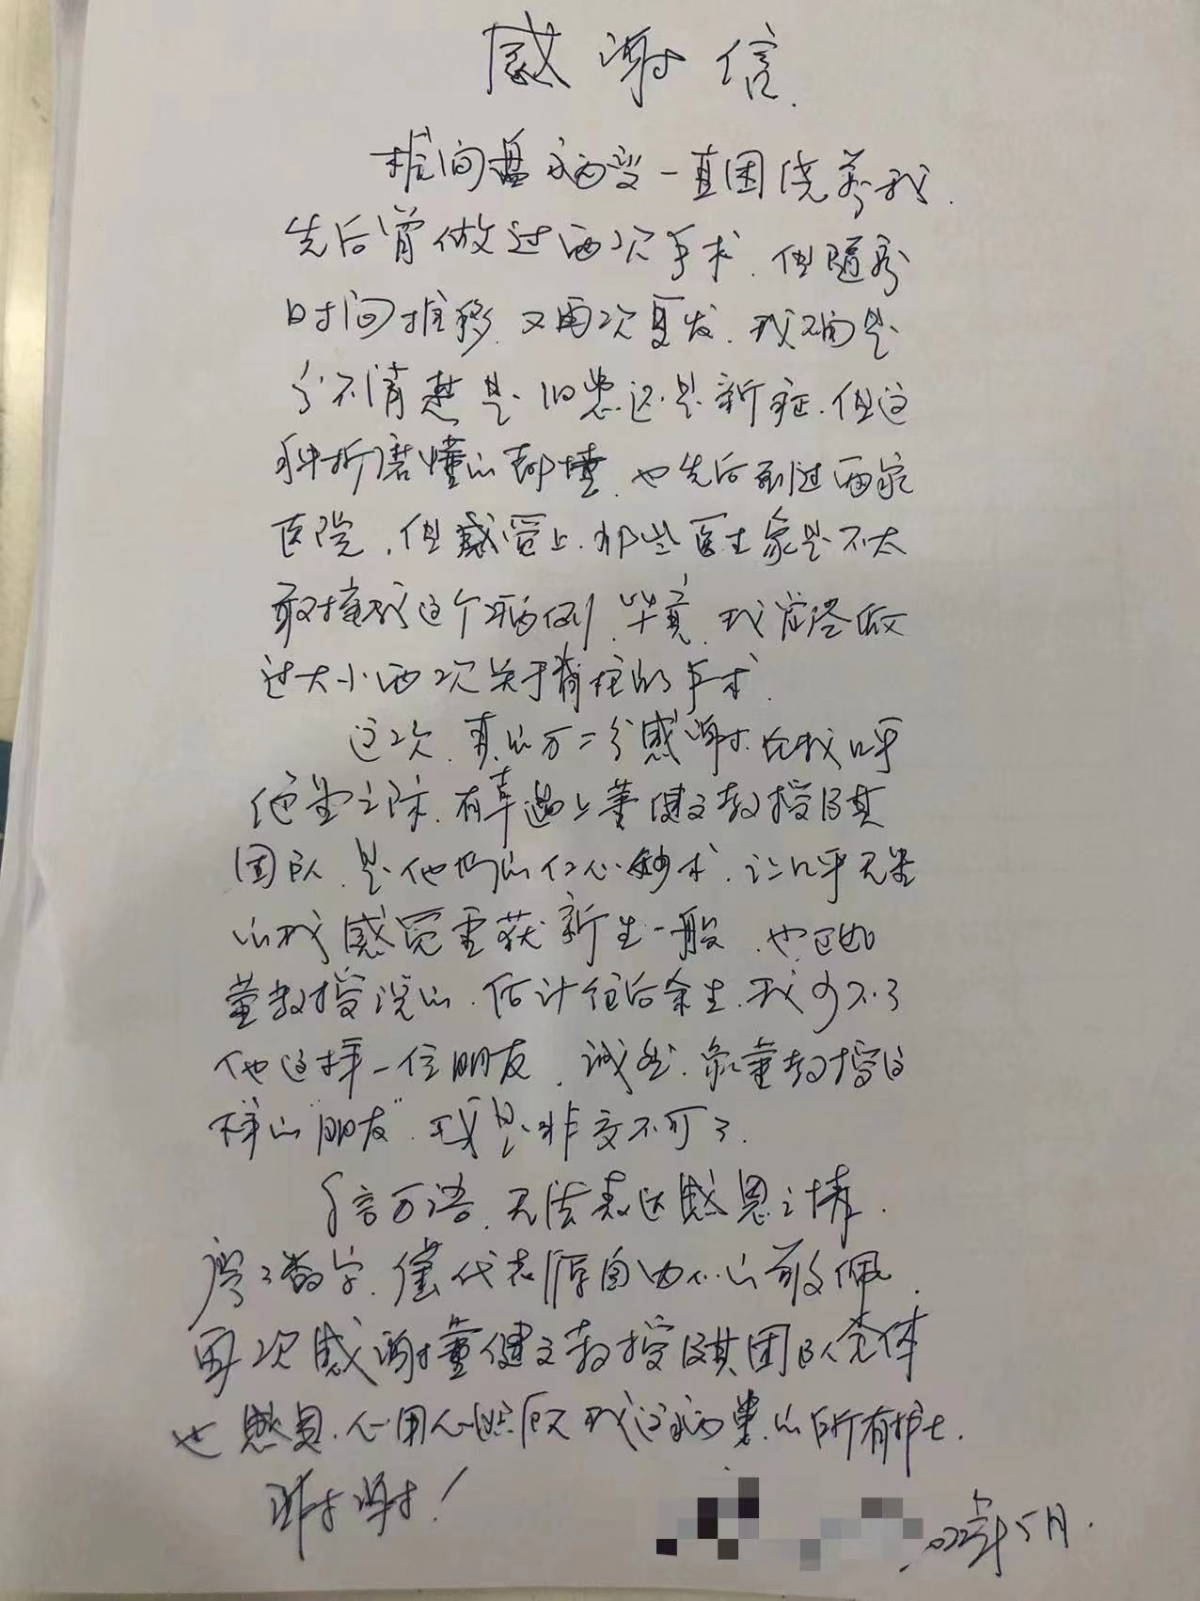 感谢信
椎间盘病变一直困绕着我.
先后曾做过两次手术.但随着
时间推移.又再次复发.我确是
分不清楚是旧患还是新症.但这
种折磨懂的都懂.也先后到过两家
医院,但感觉上.那些医生象是不太
敢接我这个病例.毕竟.我曾经做
过大小两次关于脊柱的手术.
这次.真的万二分感谢.在我几乎
绝望之际.有幸遇上董健文教授及其
团队.是他们的仁心妙术.让几乎无望
的我感觉重获新生一般.也正如
董教授说的.估计往后余生.我少不了
他这样一位朋友.诚然.象董教授这
样的"朋友".我是非交不可了.
千言万语.无法表达感恩之情.
寥寥数字.仅代表源自内心的敬佩.
再次感谢董健文教授及其团队全体
也感恩.用心照顾我这病患的所有护士.
谢谢!
2022年5月.